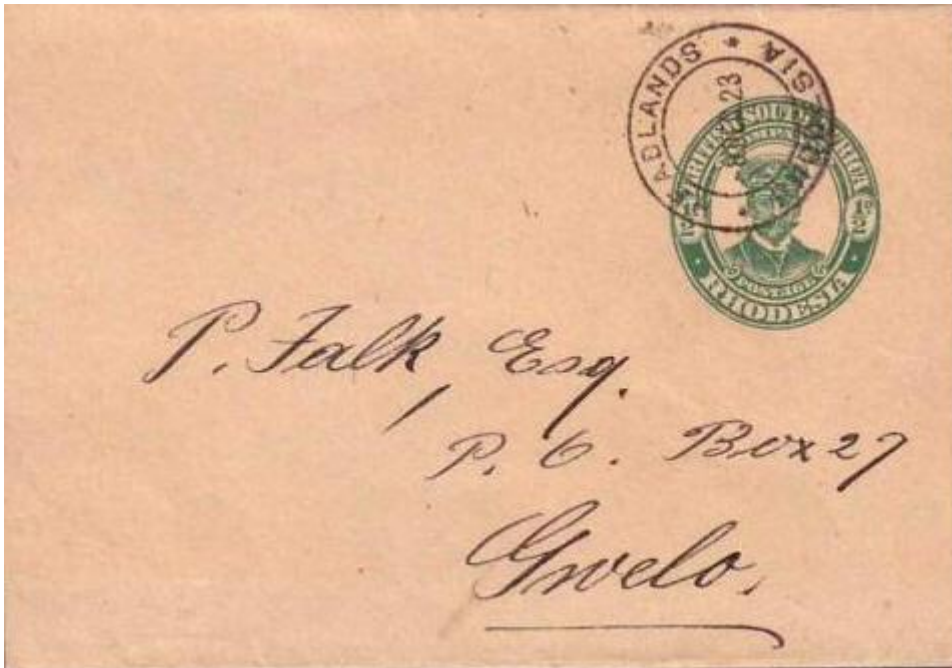 ADLANDS
23
BRITISH SOUTH AFRICA
½D
POSTAGE
RHODESIA
P. Falk, Esq.
P. O. Box 27
Gwelo.